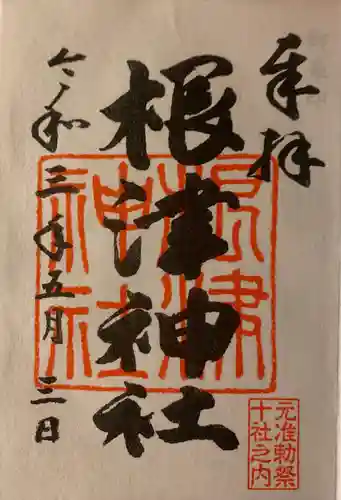 奉拝
根津神社
令和三年五月三日
根津
神社
元准勅祭
十社之内